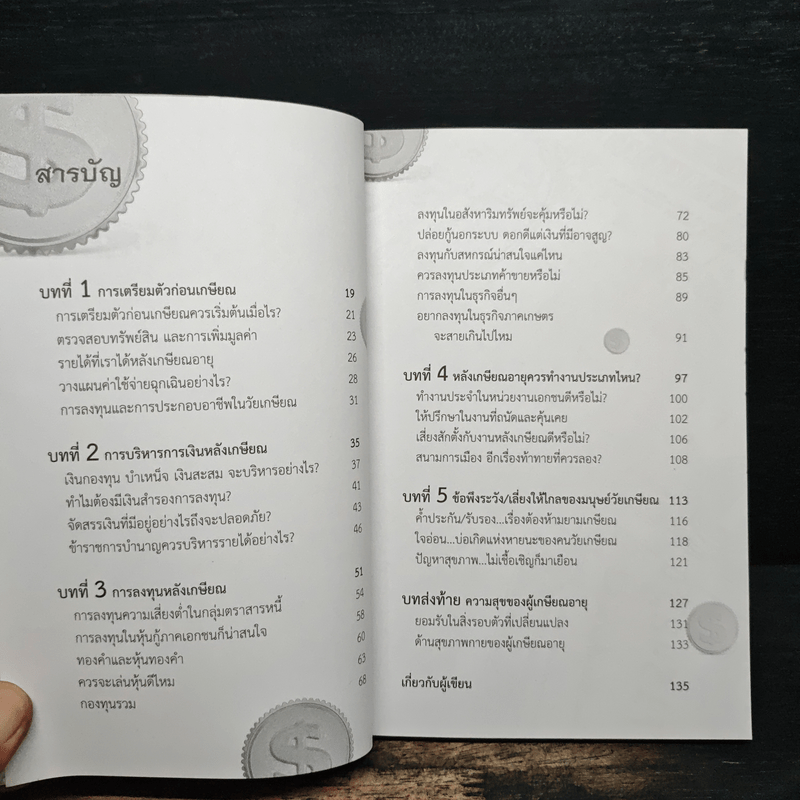 สารบัญ
บทที่ 1 การเตรียมตัวก่อนเกษียณ 19
การเตรียมตัวก่อนเกษียณควรเริ่มต้นเมื่อไร? 21
ตรวจสอบทรัพย์สิน และการเพิ่มมูลค่า 23
รายได้ที่เราได้หลังเกษียณอายุ 26
วางแผนค่าใช้จ่ายฉุกเฉินอย่างไร? 28
การลงทุนและการประกอบอาชีพในวัยเกษียณ 31
บทที่ 2 การบริหารการเงินหลังเกษียณ 35
เงินกองทุน บำเหน็จ เงินสะสม จะบริหารอย่างไร? 37
ทำไมต้องมีเงินสำรองการลงทุน? 41
จัดสรรเงินที่มีอยู่อย่างไรถึงจะปลอดภัย? 43
ข้าราชการบำนาญควรบริหารรายได้อย่างไร? 46
บทที่ 3 การลงทุนหลังเกษียณ 51
การลงทุนความเสี่ยงต่ำในกลุ่มตราสารหนี้ 54
การลงทุนในหุ้นกู้ภาคเอกชนก็น่าสนใจ 58
ทองคำและหุ้นทองคำ 60
ควรจะเล่นหุ้นดีไหม 63
กองทุนรวม 68
ลงทุนในอสังหาริมทรัพย์จะคุ้มหรือไม่? 72
ปล่อยกู้นอกระบบ ดอกดีแต่เงินที่มีอาจสูญ? 80
ลงทุนกับสหกรณ์น่าสนใจแค่ไหน 83
ควรลงทุนประเภทค้าขายหรือไม่ 85
การลงทุนในธุรกิจอื่นๆ 89
อยากลงทุนในธุรกิจภาคเกษตร
จะสายเกินไปไหม 91
บทที่ 4 หลังเกษียณอายุควรทำงานประเภทไหน? 97
ทำงานประจำในหน่วยงานเอกชนดีหรือไม่? 100
ให้ปรึกษาในงานที่ถนัดและคุ้นเคย 102
เสี่ยงสักตั้งกับงานหลังเกษียณดีหรือไม่? 106
สนามการเมือง อีกเรื่องท้าทายที่ควรลอง? 108
บทที่ 5 ข้อพึงระวัง/เลี่ยงให้ไกลของมนุษย์วัยเกษียณ 113
ค้ำประกัน/รับรอง...เรื่องต้องห้ามยามเกษียณ 116
ใจอ่อน...บ่อเกิดแห่งหายนะของคนวัยเกษียณ 118
ปัญหาสุขภาพ...ไม่เชื้อเชิญก็มาเยือน 121
บทส่งท้าย ความสุขของผู้เกษียณอายุ 127
ยอมรับในสิ่งรอบตัวที่เปลี่ยนแปลง 131
ด้านสุขภาพกายของผู้เกษียณอายุ 133
เกี่ยวกับผู้เขียน 135